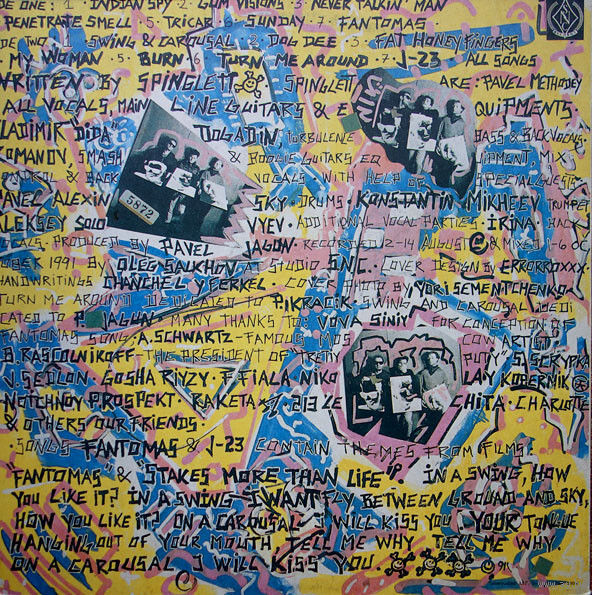 DE ONE: 1· INDIAN SPY· 2· GUM VISIONS· 3· NEVER TALKIN' MAN
PENETRATE SMELL· 5· TRICAR· 6· SUNDAY· 7· FANTOMAS·
DE TWO: 1· SWING & CAROUSAL· 2· DOG DEE· 3· FAT HONEY FINGERS
· MY WOMAN· 5· BURN· 6· TURN ME AROUND· 7· J-23· ALL SONGS
WRITTEN BY SPINGLETT· SPINGLETT ARE· PAVEL METHODEY
ALL VOCALS, MAIN LINE GUITARS & EQUIPMENTS
LADIMIR "DIDA" DOGADIN, TURBULENCE BASS & BACK VOCALS·
ROMANOV, SMASH & BOOGIE GUITARS EQUIPMENT, MIX
ONTROL & BACK VOCALS WITH HELP OF SPECIAL GUESTS
PAVEL ALEXINSKY· DRUMS· KONSTANTIN MIKHEEV TRUMPET
ALEKSEY SOLOVYEV· ADDITIONAL VOCAL PARTIES· IRINA BACK
VOCALS· PRODUCED BY PAVEL JAGUN· RECORDED 2-14 AUGUST & MIXED 1-6 OC
TOBER 1991 BY OLEG SALKHOV AT STUDIO S.N.C.· COVER DESIGN BY ERRORROXXX·
HANDWRITINGS CHANCHEL YFERKEL· COVER PHOTO BY YURI SEMENTCHENKO·
TURN ME AROUND DEDICATED TO PIKRACIK· SWING AND CAROUSAL DEDI
CATED TO P. JAGUN· MANY THANKS TO: VOVA SINIY FOR CONCEPTION OF
FANTOMAS SONG· A. SCHWARTZ- FAMOUS MOSCOW ARTIST·
B. RASCOLNIKOFF- THE PRESIDENT OF "TRETIY PUTY"· S. SCRYPKA
V. SEDLON· GOSHA RIYZY· F. FIALA· NIKOLAY KOPERNIK
NOTCHNOY PROSPEKT· RAKETA· 213 LECHITA· CHARLOTTE
& OTHERS OUR FRIENDS·
· SONGS FANTOMAS & J-23 CONTAIN THEMES FROM FILMS:
"FANTOMAS" & "STAKES MORE THAN LIFE"· IN A SWING, HOW
YOU LIKE IT? IN A SWING I WANT FLY BETWEEN GROUND AND SKY,
HOW YOU LIKE IT? ON A CAROUSAL I WILL KISS YOU, YOUR TONGUE
HANGING OUT OF YOUR MOUTH TELL ME WHY TELL ME WHY·
ON A CAROUSAL I WILL KISS YOU
5872